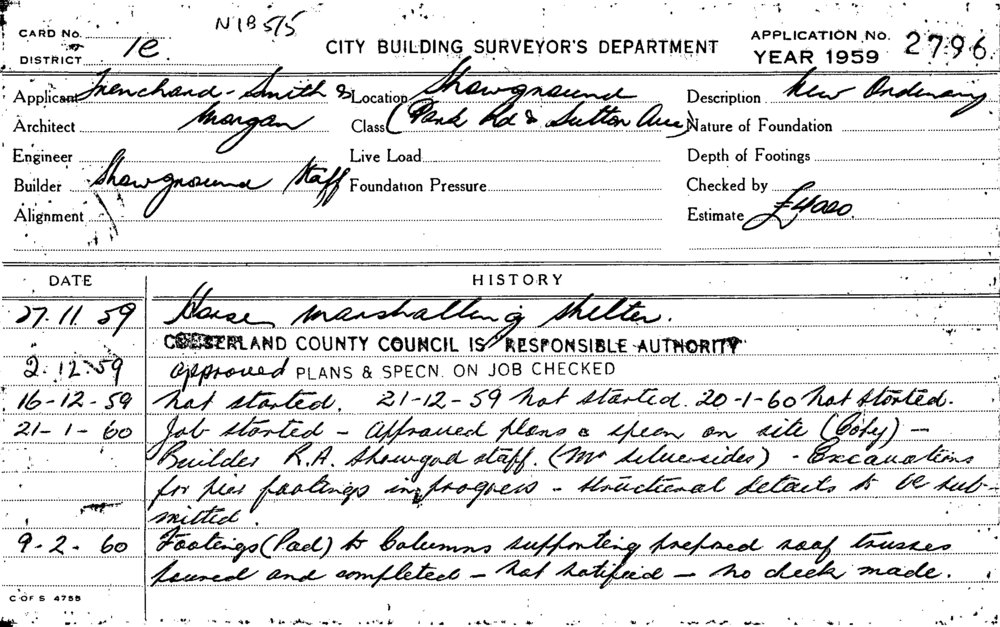 N1B5/5
CARD No.
DISTRICT 1e
CITY BUILDING SURVEYOR'S DEPARTMENT
APPLICATION No. 2796
YEAR 1959
Applicant Trenchard-Smith & Location Showground Description New Ordinary
Architect Morgan Class (Park Rd & Sutton Ave) Nature of Foundation
Engineer Live Load Depth of Footings
Builder Showground Staff Foundation Pressure Checked by
Alignment Estimate £4000.
DATE HISTORY
27.11.59 Horse marshalling shelter.
CUMBERLAND COUNTY COUNCIL IS RESPONSIBLE AUTHORITY
2.12.59 approved PLANS & SPECN. ON JOB CHECKED
16-12-59 Not started. 21-12-59 Not started. 20-1-60 Not started.
21-1-60 Job started - Approved plans & specn on site (Copy) -
Builder R.A. Showgrd staff. (Mr Silversides) - Excavations
for pier footings in progress - structural details to be sub-
mitted.
9-2-60 Footings (Pad) to Columns supporting proposed roof trusses
poured and completed - not notified - no check made.
C OF S 4758